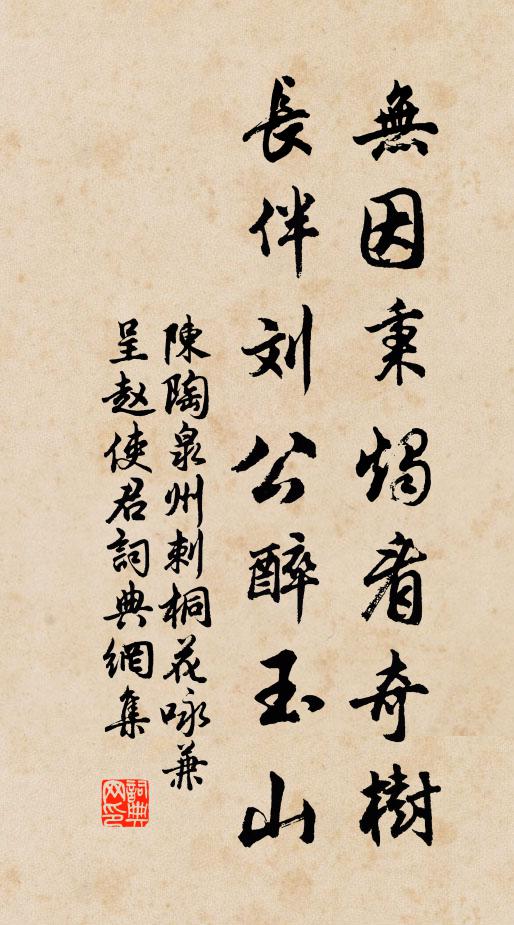 無因秉燭看奇樹
長伴刘公醉玉山
陳陶泉州刺桐花咏兼
呈赵使君詞典網集
詞典
网印